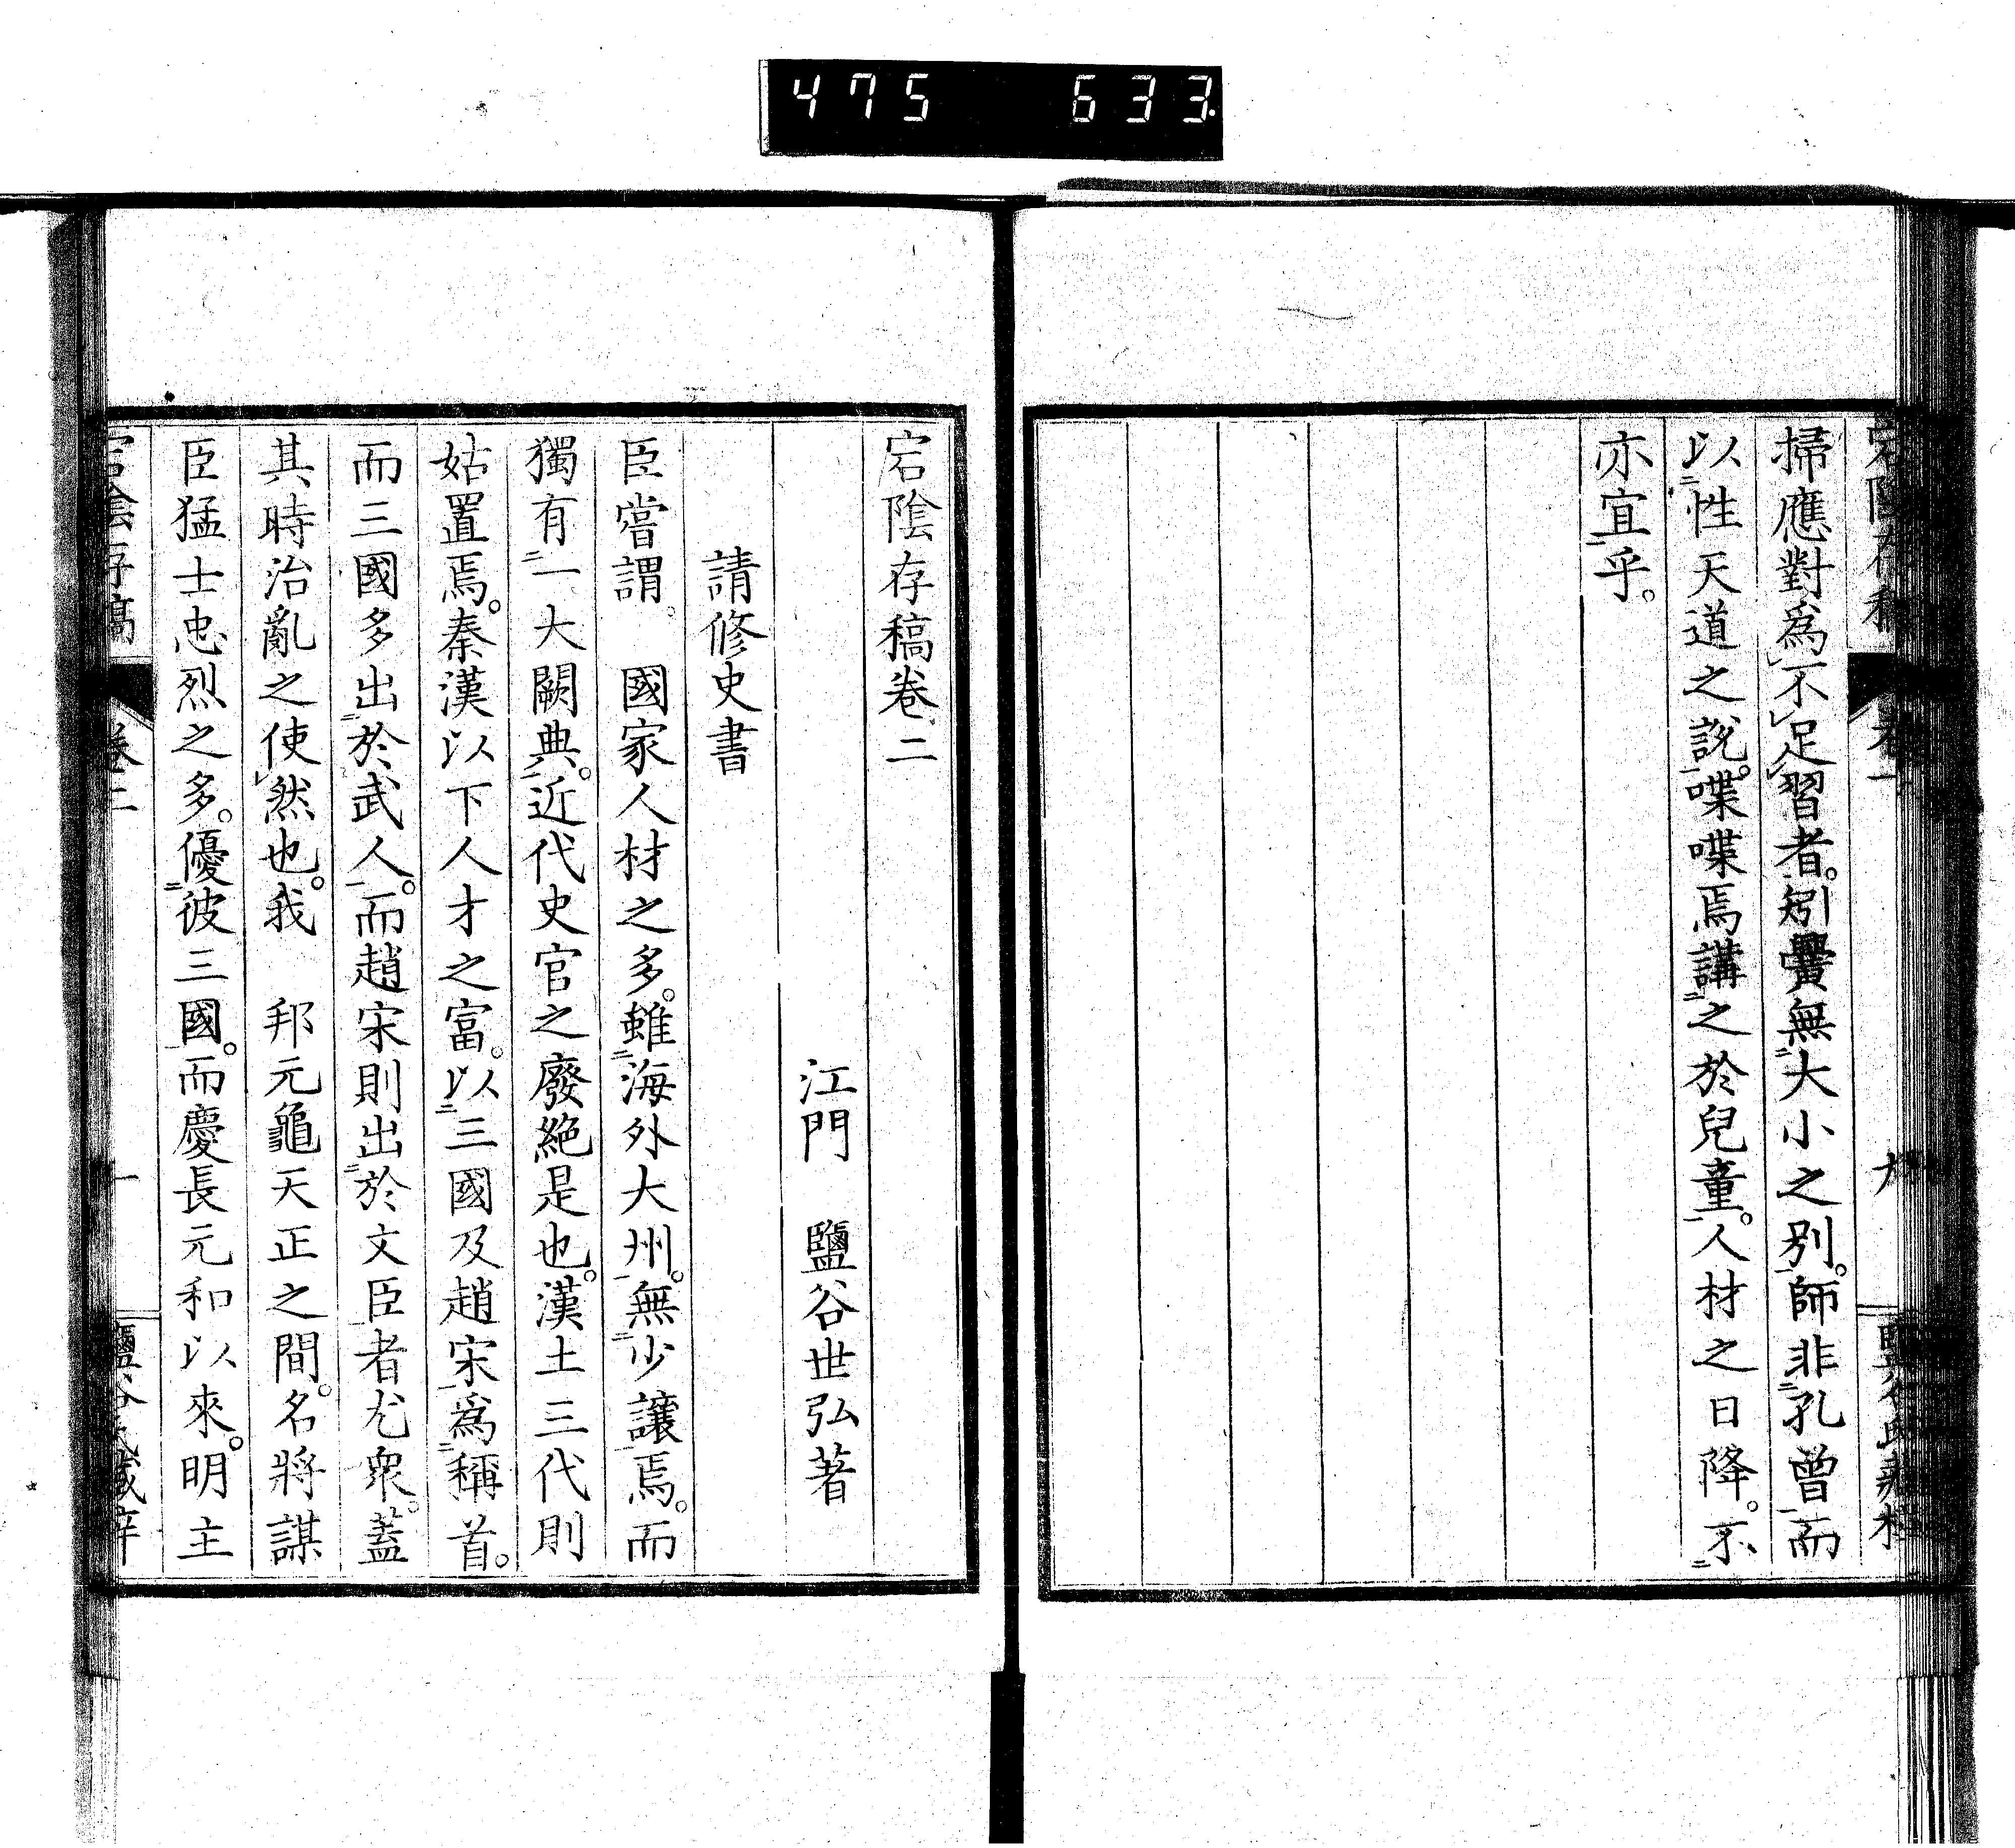 475 633
掃應對爲不足習者。矧黌無大小之別。師非孔曾而
以性天道之說。喋喋焉講之於兒童。人材之日降。不
亦宜乎。
宕陰存稿卷二
江門 鹽谷世弘著
請修史書
臣嘗謂。 國家人材之多。雖海外大州。無少讓焉。而
獨有一大闕典。近代史官之廢絕是也。漢土三代則
姑置焉。秦漢以下人才之富。以三國及趙宋爲稱首。
而三國多出於武人。而趙宋則出於文臣者尤衆。蓋
其時治亂之使然也。我 邦元龜天正之間。名將謀
臣猛士忠烈之多。優彼三國。而慶長元和以來。明主
宕陰存稿 卷二 一